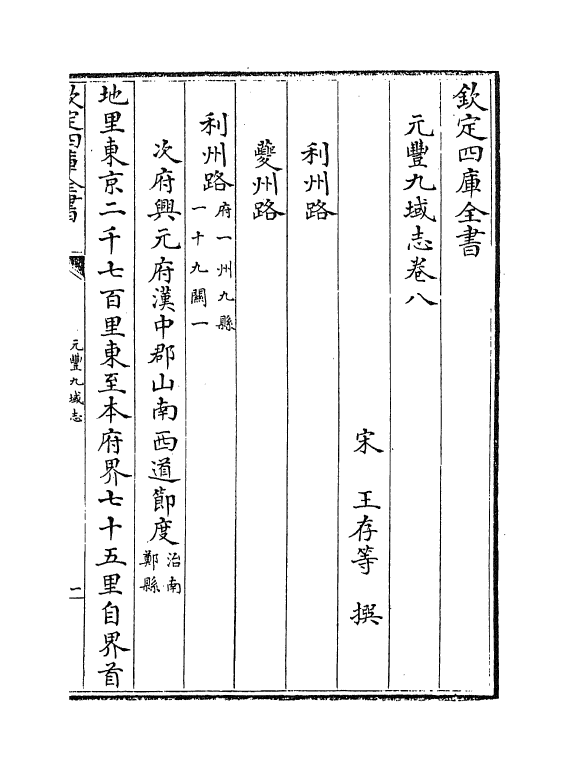 欽定四庫全書
元豐九域志卷八
宋　王存等　撰
利州路
夔州路
利州路府一州九縣一十九關一
次府興元府漢中郡山南西道節度治南鄭縣
地里東京二千七百里東至本府界七十五里自界首
欽定四庫全書
元豐九域志